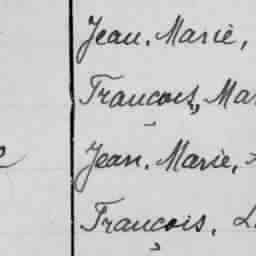 Jean. Marie,
François, Mar
Jean. Marie,
François. L